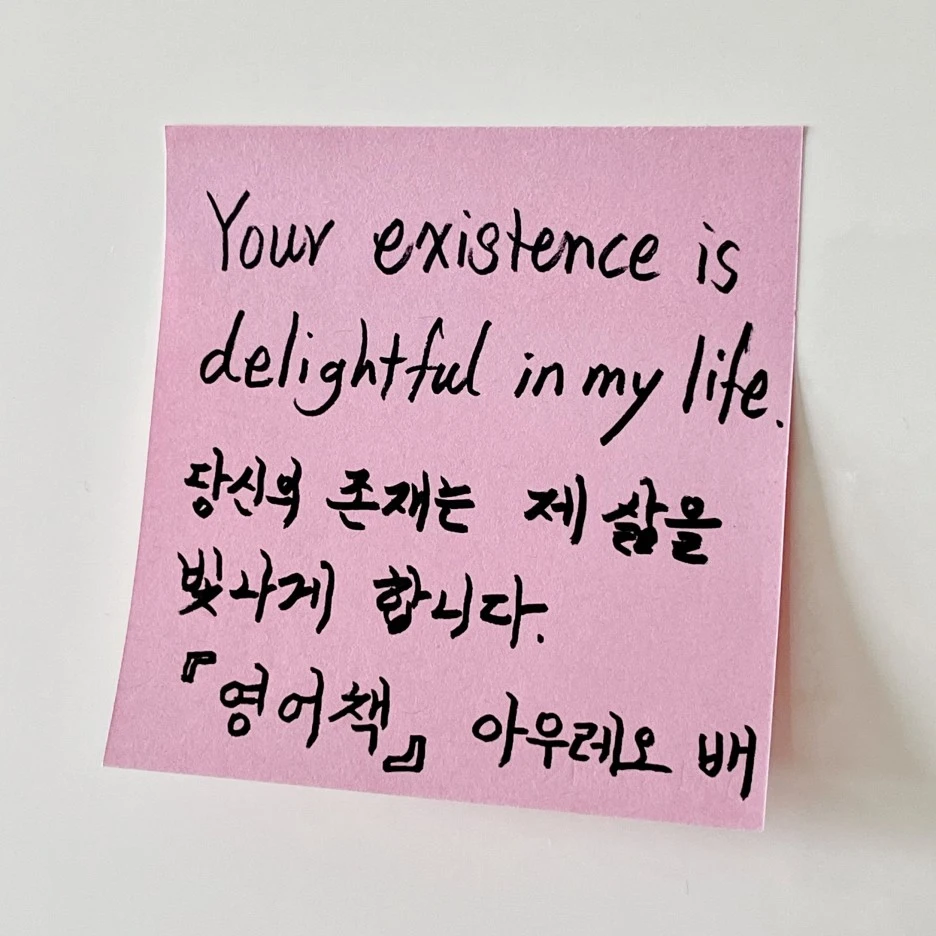 Your existence is
delightful in my life.
당신의 존재는 제 삶을
빛나게 합니다.
『영어책』 아우레오 배